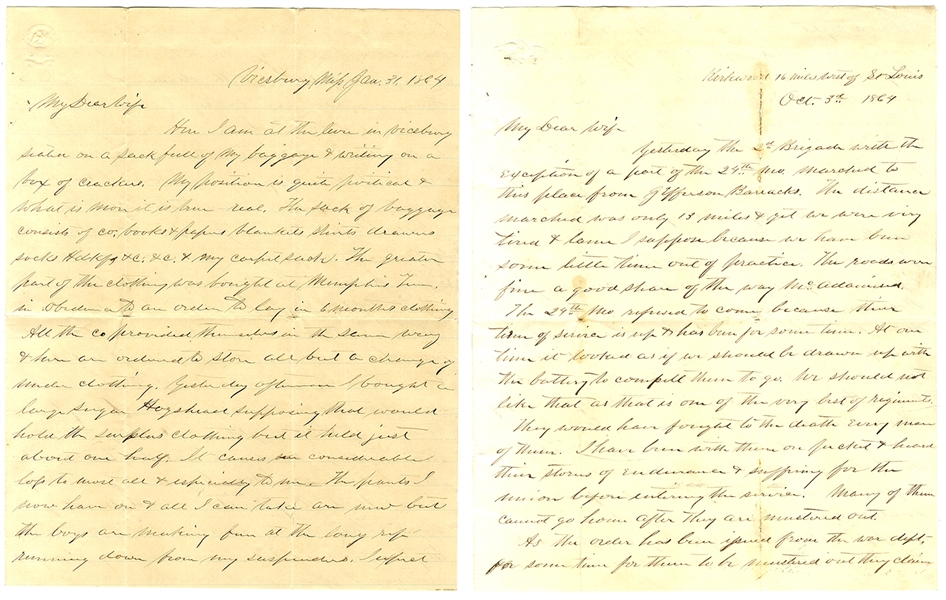 Vicsburg Miss Jan. 31. 1864
My Dear Wife
Here I am at the levee in Vicsburg
seated on a sack full of my baggage & writing on a
box of crackers. My position is quite poetical &
what is more it is true - real. The sack of baggage
consists of co. books & papers blankets shirts drawers
socks Hdkfs &c. &c. & my carpet sack. The greater
part of the clothing was bought at Memphis Tenn.
in obedience to an order to lay in 6 months clothing
All the co. provided themselves in the same way
& here are ordered to store all but a change of
under clothing. Yesterday afternoon I bought a
large sugar Hogshead supposing that would
hold the surplus clothing but it held just
about one half. It causes considerable
loss to most all & especially to me. The pants I
now have on & all I can take are new but
the boys are making fun at the long
running down from my suspenders. I expect
Kirkwood 16 miles west of St Louis
Oct. 3rd 1864
My Dear Wife
Yesterday the 2d Brigade with the
exception of a part of the 24th Mo. marched to
this place from Jefferson Barracks. The distance
marched was only 13 miles & yet we were very
tired & lame I suppose because we have been
some little time out of practice. The roads were
fine a good share of the way McAdamised.
The 24th Mo refused to come because their
term of service is up & has been for some time. At one
time it looked as if we should be drawn up with
the battery to compell them to go. We should not
like that as that is one of the very best of regiments
They would have fought to the death every man
of them. I have been with them on picket & heard
their stories of endurance & suffering for the
union before entering the service. Many of them
cannot go home after they are mustered out.
As the order has been issued from the war dept.
for some time for them to be mustered out they claim